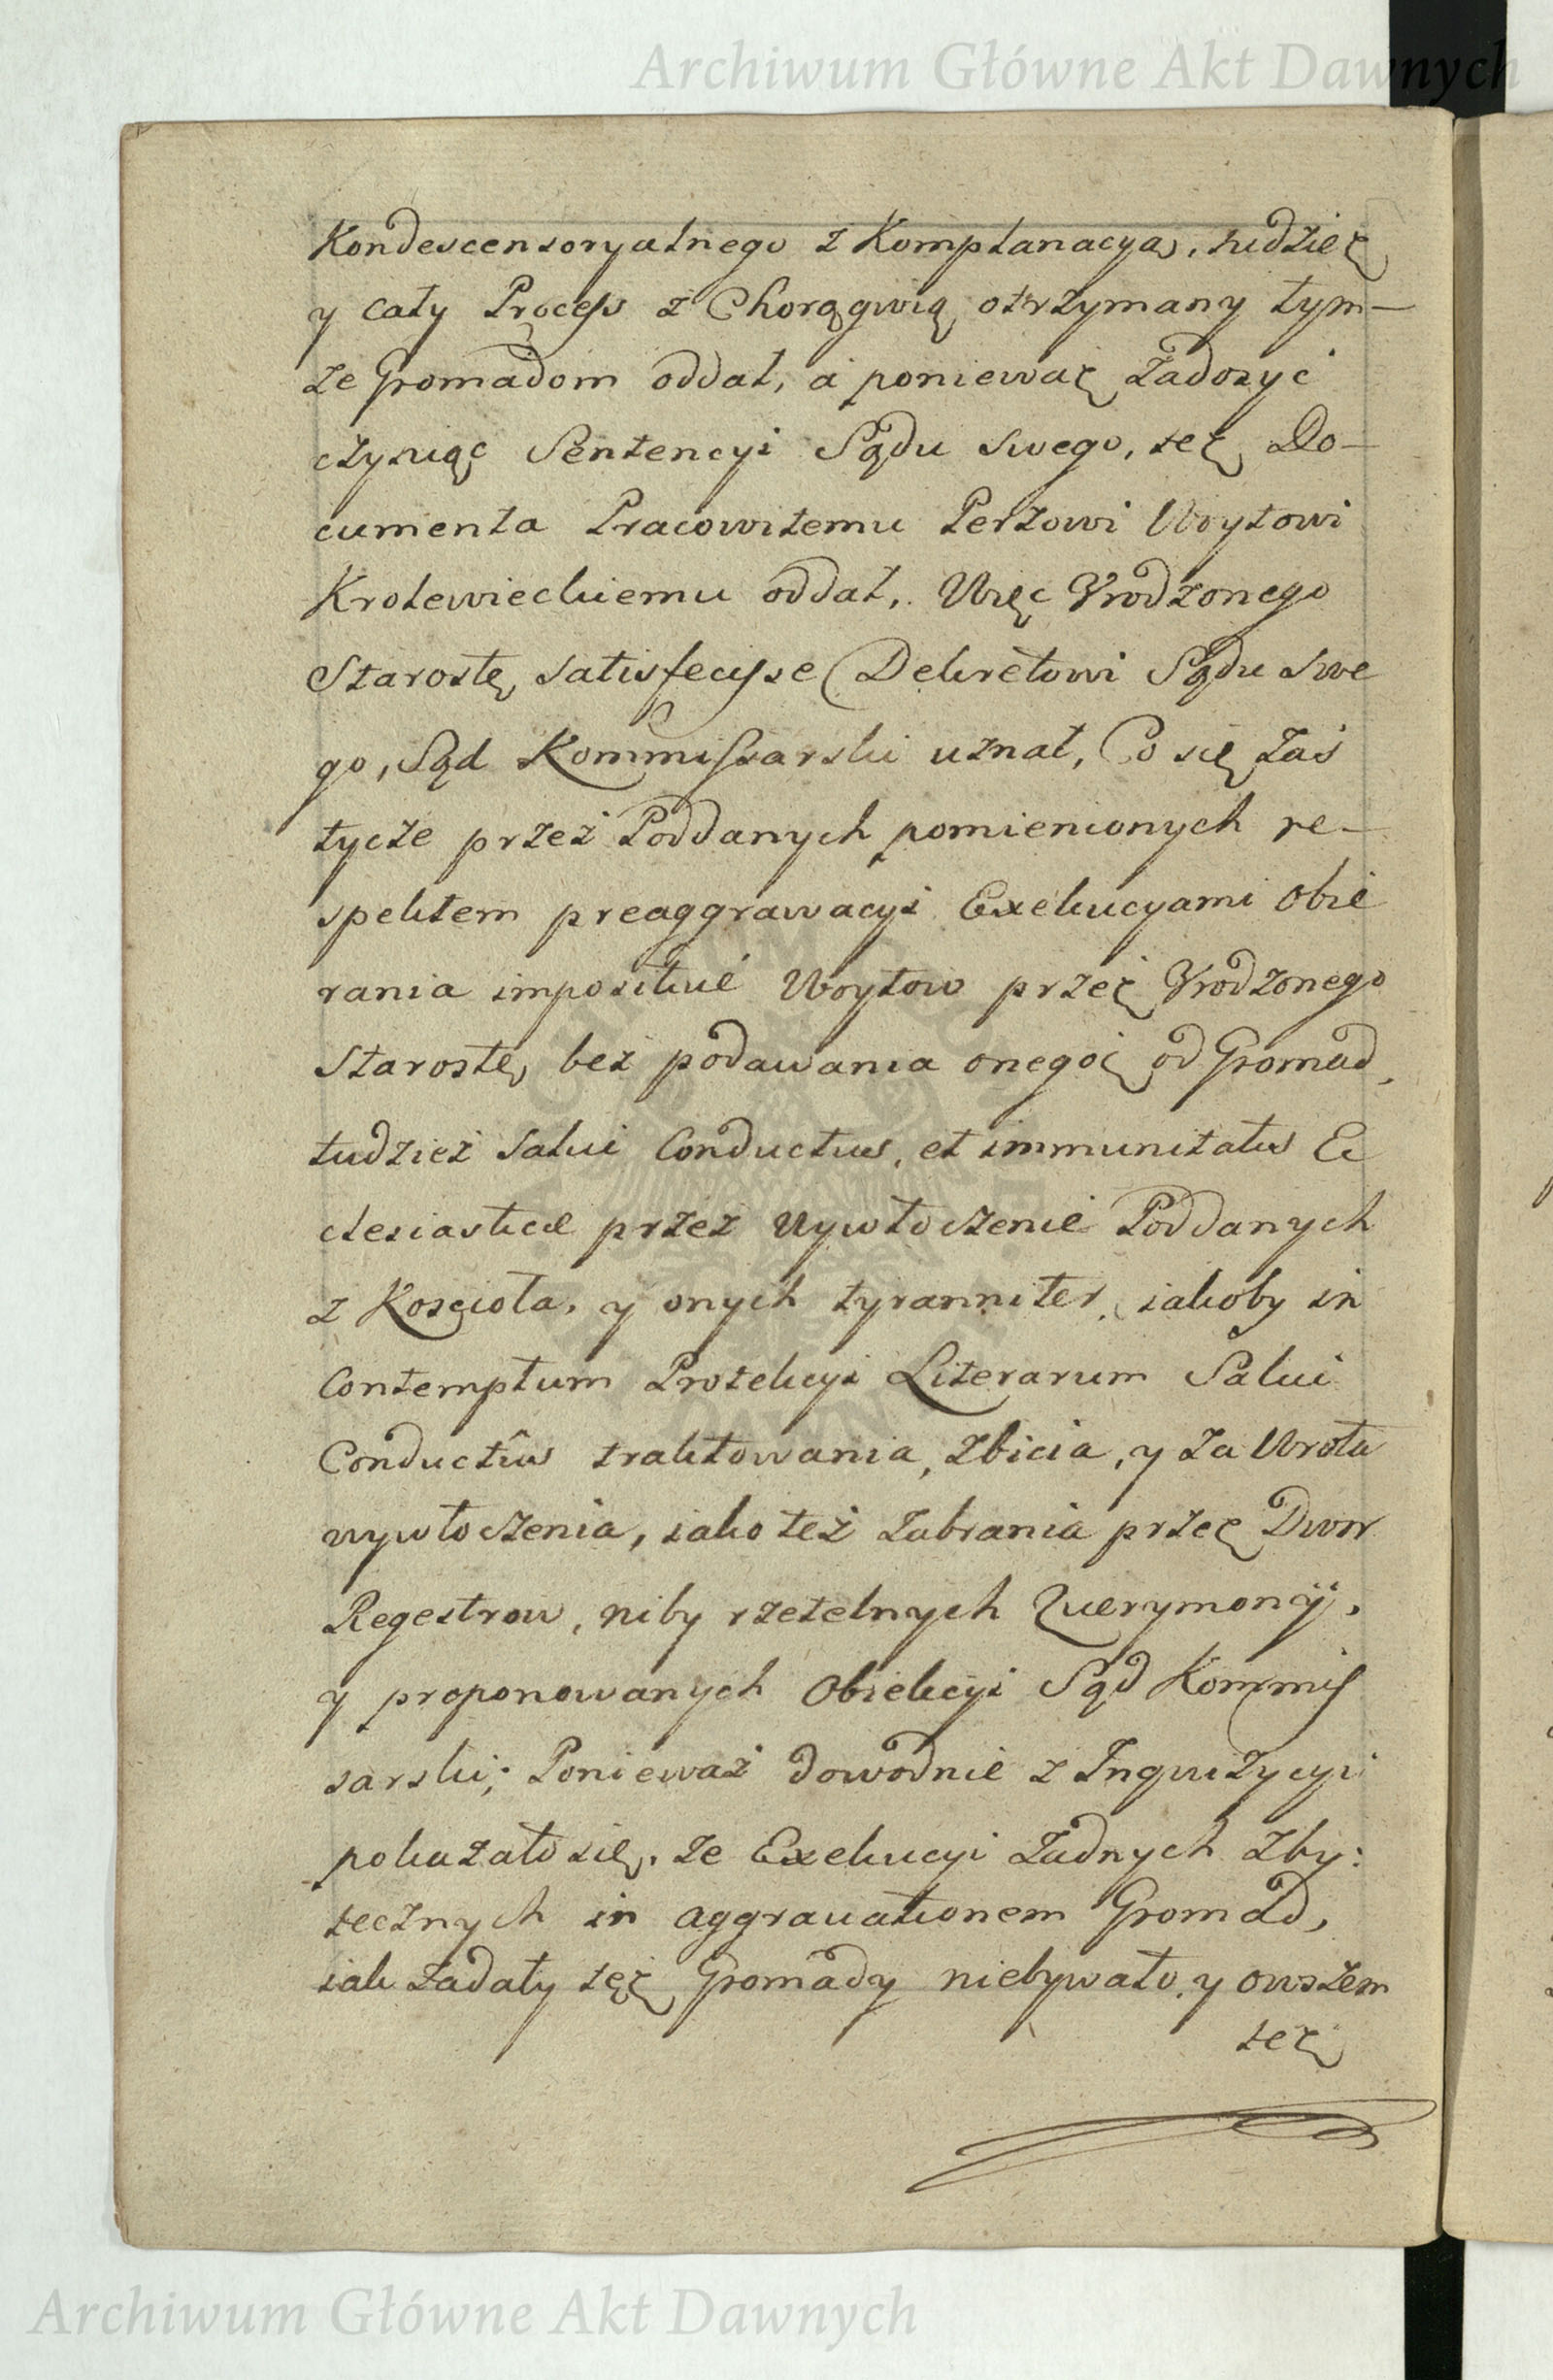 Archiwum Główne Akt Dawnych
Kondescensoryalnego z Komplanacyą, tudzież
y cały Process z Chorągwią otrzymany tym—
że Gromadom oddał, á ponieważ zadosyć
czyniąc Sentencyi Sądu swego, też Do—
cumenta Pracowitemu Perzowi Woytowi
Krolewieckiemu oddał, Więc Urodzonego
Starostę, satisfecisse Dekretowi Sądu swe
go, Sąd Kommissarski uznał, Co się zaś
tycze przez Poddanych pomienionych re—
spektem preaggrawacyi Exekucyami obie
rania impositivé Woytow przez Urodzonego
Starostę, bez podawania onegoż od Gromad,
tudzież Salvi Conductus, et immunitatis Ec
clesiasticæ przez wywłoczenie Poddanych
z Koscioła, y onych tyranniter, iakoby in
Contemptum Protekcyi Literarum Salvi
Conductûs traktowania, zbicia, y za Wrota
wywłoczenia, iako też zabrania przez Dwor
Regestrow, niby rzetelnych Querymonij,
y proponowanych Obiekcyi Sąd Kommis
sarski; Ponieważ dowodnie z Inquizycyi
pokazało się, że Exekucyi żadnych zby:
tecznych in aggravationem Gromad,
iak zadały też Gromady niebywało, y owszem
też
Archiwum Główne Akt Dawnych